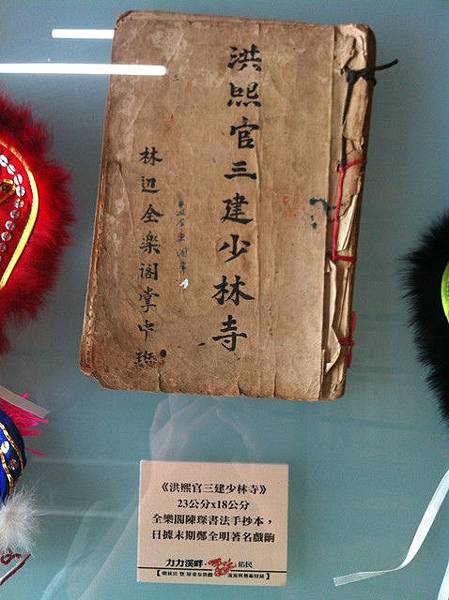 洪熙官三建少林寺
林辺全樂閣掌中
《洪熙官三建少林寺》
23公分x18公分
全樂閣陳琛書法手抄本，
日據末期鄭全明著名戲齣
力力溪畔・
佑民